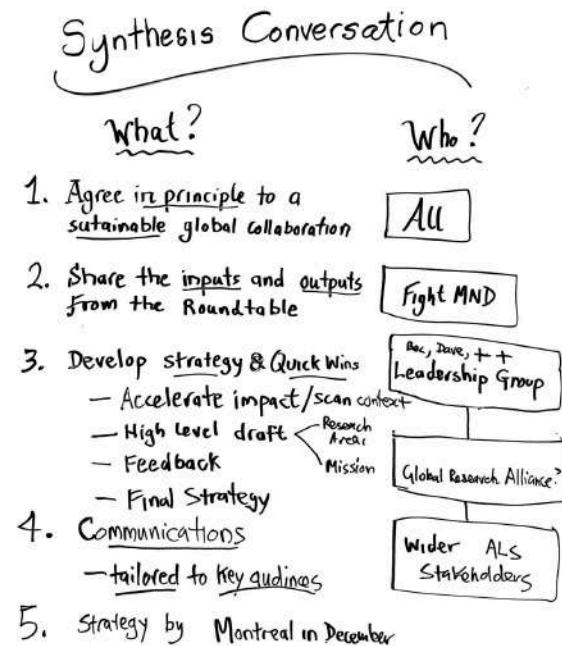 Synthesis Conversation
What?
1. Agree in principle to a
sutainable global collaboration
2. Share the inputs and outputs
from the Roundtable
3. Develop strategy & Quick Wins
— Accelerate impact/scan context
— High Level draft
Research
Areas
Mission
— Feedback
— Final Strategy
4. Communications
— tailored to key audinces
5. Strategy by Montreal in December
Who?
All
Fight MND
Bec, Dave, ++
Leadership Group
Global Research Alliance?
Wider ALS
Stakeholders